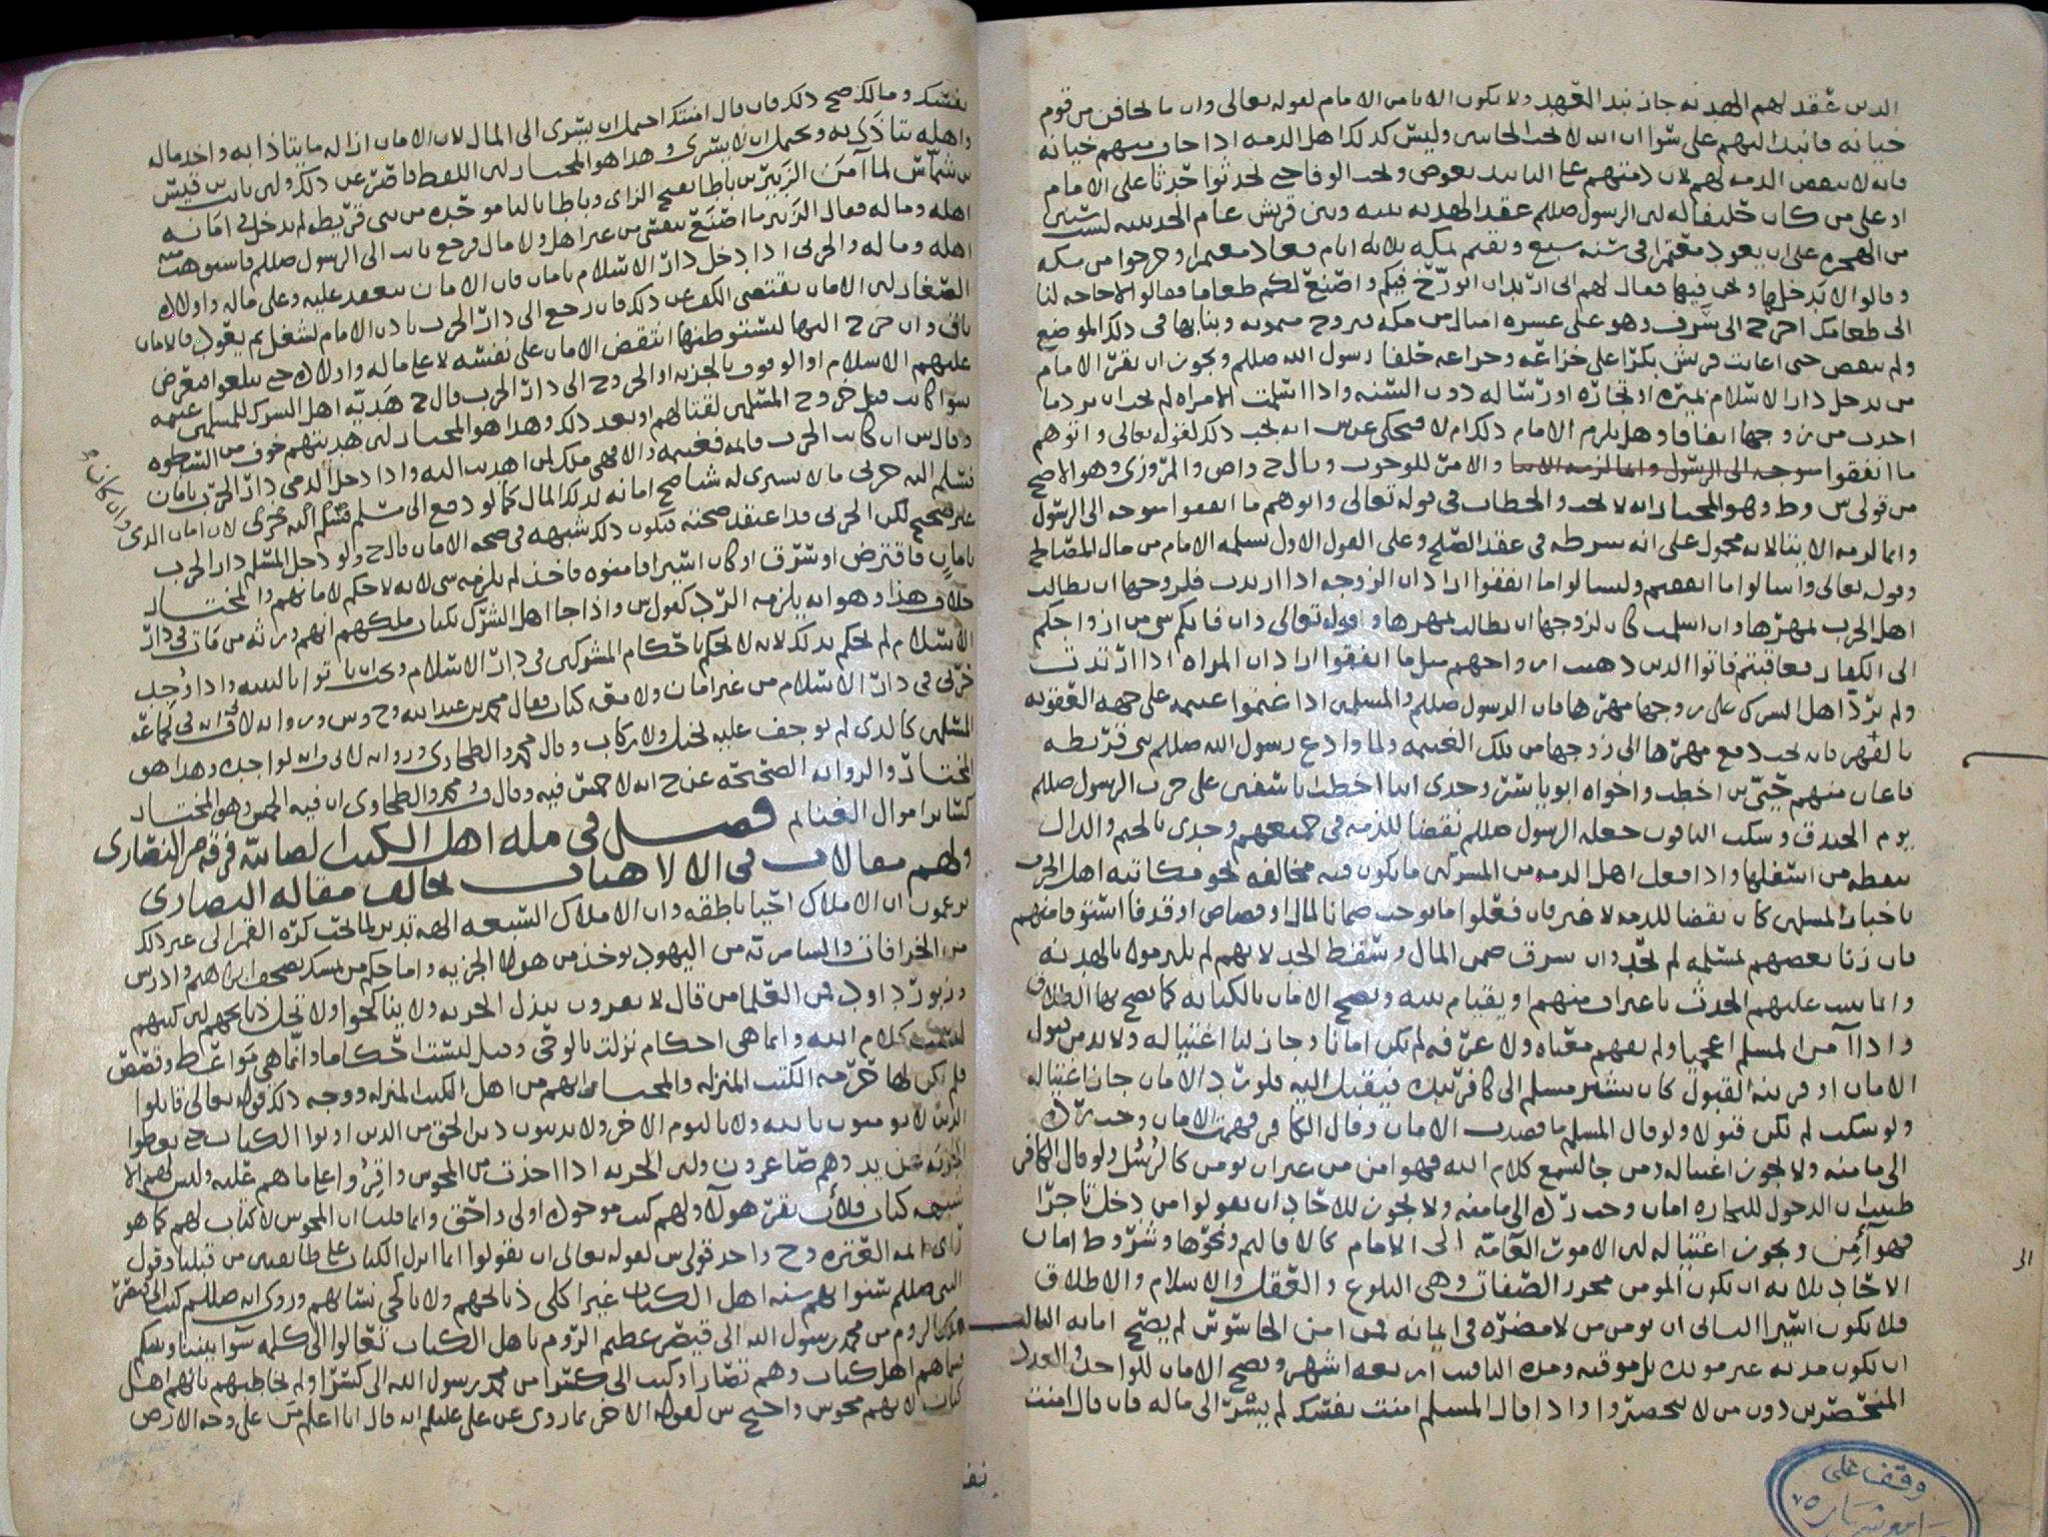 الذين عقد لهم الهدنه جاز نبذ العهد ولا يكون الا بامر الامام لقوله تعالى واما تخافن من قوم
خيانه فانبذ اليهم على سوا ان الله لا يحب الخاينين وليس كذلك اهل الذمه اذا خاف منهم خيانه
فانه لا ينقض الذمه لهم لان ذمتهم على التابيد بعوض ويجب الوفا حتى يحدثوا حدثا على الامام
او على من كان خليفا له لان الرسول صللم عقد الهدنه بينه وبين قريش عام الحديبيه لسنتين
من الهجره على ان يعود معتمرا في سنه سبع ويقيم بمكه ثلاثه ايام فعاد معتمرا وخرجوا من مكه
وقالوا لا يدخلها ونحن فيها فقال لهم اني اريد ان اتزوج فيكم واصنع لكم طعاما فقالوا لا حاجه لنا
الى طعامك اخرج الى سرف وهو على عشره اميال من مكه فتزوج ميمونه وبنا بها في ذلك الموضع
ولم ينقض حتى اعانت قريش بكرا على خزاعه وخزاعه حلفا رسول الله صللم ويجوز ان يقر الامام
من يدخل دار الاسلام لميره او تجاره او رساله دون السنه واذا اسلمت الامراه لم يجب ان يرد ما
اخذت من زوجها اتفاقا وهل يلزم الامام ذلك ام لا فحكى عن س انه يجب ذلك لقوله تعالى واتوهم
ما انفقوا والامر للوجوب وقال ح واص والمروزي وهو الاصح
من قولي س وط وهو المختار انه لا يجب والخطاب في قوله تعالى واتوهم ما انفقوا متوجه الى الرسول
وانما لزمه الايتا لانه محمول على انه شرطه في عقد الصلح وعلى القول الاول يسلمه الامام من مال المصالح
وقوله تعالى واسالوا ما انفقتم وليسالوا ما انفقوا اراد ان الزوجه اذا ارتدت فلزوجها ان يطالب
اهل الحرب بمهرها وان اسلمت كان لزوجها ان يطالب بمهرها وقوله تعالى وان فاتكم شي من ازواجكم
الى الكفار فعاقبتم فاتوا الذين ذهبت ازواجهم مثل ما انفقوا اراد ان المراه اذا ارتدت
ولم يرد اهل الشرك على زوجها مهرها فان الرسول صللم والمسلمين اذا غنموا غنيمه على جهه العقوبه
بالقهر فانه يجب دفع مهرها الى زوجها من تلك الغنيمه ولما وادع رسول الله صللم بني قريظه
فاعان منهم حيي بن اخطب واخواه ابو ياسر وجدي ابنا اخطب باسفين على حرب الرسول صللم
يوم الخندق وسكت الباقون جعله الرسول صللم نقضا للذمه في جميعهم وجدي بالجيم والدال
بنقطه من اسفلها واذا فعل اهل الذمه من المشركين ما يكون فيه مخالفه نحو مكاتبه اهل الحرب
باخبار المسلمين كان نقضا للذمه لا غير فان فعلوا ما يوجب ضمانا لمال او قصاص او قذفا استوفا منهم
فان زنا بعضهم بمسلمه لم يحد وان سرق ضمن المال وسقط الحد لانهم لم يلتزموا بالهدنه
وانما يثبت عليهم الحدث باعتراف منهم او بقيام بينه ويصح الامان بالكنايه كما يصح بها الطلاق
واذا آمن المسلم اعجميا ولم يفهم معناه ولا عرفه لم يكن امانا وجاز لنا اغتياله ولا بد من قبول
الامان او قرينه القبول كان يشير مسلم الى كافر بيده فيقبل اليه فلو رد الامان جاز اغتياله
ولو سكت لم تكن قبولا ولو قال المسلم ما قصدت الامان وقال الكافر فهمت الامان وجب رده
الى مامنه ولا يجوز اغتياله ومن جا ليسمع كلام الله فهو امن من غير ان يومن كالرسل ولو قال الكافر
ظننت ان الدخول للتجاره امان وجب رده الى مامنه ولا يجوز للاحاد ان يقولوا من دخل تاجرا
فهو آمن ويجوز اغتياله لان الامور العامه الى الامام كالاقاليم ونحوها وشروط امان
الاحاد ثلاثه ان يكون المومن محرر الصفات وهي البلوغ والعقل والاسلام والاطلاق
فلا يكون اسيرا الثاني ان يومن من لا مضره في امانه فمن امن الجاسوس لم يصح امانه الثالث
ان تكون مدته غير موبده بل موقته ومده التاقيت اربعه اشهر ويصح الامان للواحد والعدد
المنحصرين دون من لا ينحصروا واذا قال المسلم امنت نفسك لم يسر الى ماله فان قال امنت
وقف على
نفسك ومالك صح ذلك فان قال امنتك احتمل ان يسري الى المال لان الامان ازاله ما يتاذا به واخذ ماله
واهله يتاذى به ويحتمل ان لا يسري وهذا هو المختار لان اللفظ قاصر عن ذلك ولان ثابت بن قيس
بن شماس لما آمن الزبير بن باطا بفتح الزاي وباطا بالبا موحده من بني قريظه لم يدخل في امانه
اهله وماله فقال الزبير ما اصنع بنفسي من غير اهل ولا مال فرجع ثابت الى الرسول صللم فاستوهبه
اهله وماله والحربي اذا دخل دار الاسلام بامان فان الامان ينعقد عليه وعلى ماله واولاده
الصغار لان الامان يقتضي الكف عن ذلك فان رجع الى دار الحرب باذن الامام لشغل ثم يعود فالامان
باق وان خرج اليها ليستوطنها انتقض الامان على نفسه لا على ماله واولاده حتى يبلغوا فيعرض
عليهم الاسلام او الوقوف بالجزيه او الخروج الى دار الحرب قال ح هديه اهل الشرك للمسلمين غنيمه
سوا كانت قبل خروج المسلمين لقتالهم او بعد ذلك وهذا هو المختار لان هديتهم خوف من السطوه
وقال س ان كانت الحرب قائمه فغنيمه والا فهي ملك لمن اهديت اليه واذا دخل الذمي دار الحرب بامان
وان كان
فسلم اليه حربي مالا يشتري له شيا صح امانه لذلك المال كما لو دفع الى مسلم فسلم اليه حربي لان امان الذمي
غير صحيح لكن الحربي قد اعتقد صحته فيكون ذلك شبهه في صحه الامان قال ح ولو دخل المسلم دار الحرب
بامان فاقترض او سرق او كان اسيرا فامنوه فاخذ لم يلزمه شي لانه لا حكم لامانهم والمختار
خلاف هذا وهو انه يلزمه الرد كقول س واذا جا اهل الشرك بكتاب ملكهم انهم ورثه من مات في دار
الاسلام لم يحكم بذلك لانه لا يحكم باحكام المشركين في دار الاسلام ويجب ان ياتوا بالبينه واذا وجد
حربي في دار الاسلام من غير امان ولا معه كتاب فقال محمد بن عبد الله وح وس وروايه لاق انه في لجماعه
المسلمين كالذي لم يوجف عليه بخيل ولا ركاب وقال محمد والطحاوي وروايه لابي ق انه لواجده وهذا هو
المختار والروايه الصحيحه عن ح انه لا خمس فيه وقال ف ومحمد والطحاوي ان فيه الخمس وهو المختار
كسائر اموال الغنائم فصل في مله اهل الكتب الصابيه فرقه من النصارى
ولهم مقالات في الالاهيات تخالف مقاله النصارى
يزعمون ان الافلاك احيا ناطقه وان الافلاك السبعه الهه تدبر لما تحت كره القمر الى غير ذلك
من الخرافات والسامره من اليهود يوخذ من هولا الجزيه واما حكم من تمسك بصحف ابراهيم وادريس
وزبور داود فمن العلما من قال لا يقرون ببذل الجزيه ولا يناكحوا ولا تحل ذبائحهم لان كتبهم
ليست كلام الله وانما هي احكام نزلت بالوحي وقيل ليست احكاما وانما هي مواعظ وقصص
فلم يكن لها حرمه الكتب المنزله والمختار انهم من اهل الكتب المنزله ووجه ذلك قوله تعالى قاتلوا
الذين لا يومنون بالله ولا باليوم الاخر ولا يدينون دين الحق من الذين اوتوا الكتاب حتى يعطوا
الجزيه عن يد وهم صاغرون ولان الجزيه اذا اخذت من المجوس واقروا على ما هم عليه وليس لهم الا
شبهه كتاب فلأن يقر هولآ ولهم كتب موجوده اولى واحق وانما قلنا ان المجوس لا كتاب لهم كما هو
راى ائمه العتره وح واحد قولي س لقوله تعالى ان يقولوا انما انزل الكتاب على طائفتين من قبلنا وقول
النبي صللم سنوا بهم سنه اهل الكتاب غير اكلي ذبائحهم ولا ناكحي نسائهم وروي انه صللم كتب الى قيصر
ملك الروم من محمد رسول الله الى قيصر عظيم الروم يا اهل الكتاب تعالوا الى كلمه سوا بيننا وبينكم
فسماهم اهل كتاب وهم نصارا وكتب الى كسرا من محمد رسول الله الى كسرا ولم يخاطبهم بانهم اهل
كتاب لانهم مجوس واحتج س لقوله الاخر بما روي عن علي عليلم انه قال انا اعلم من على وجه الارض